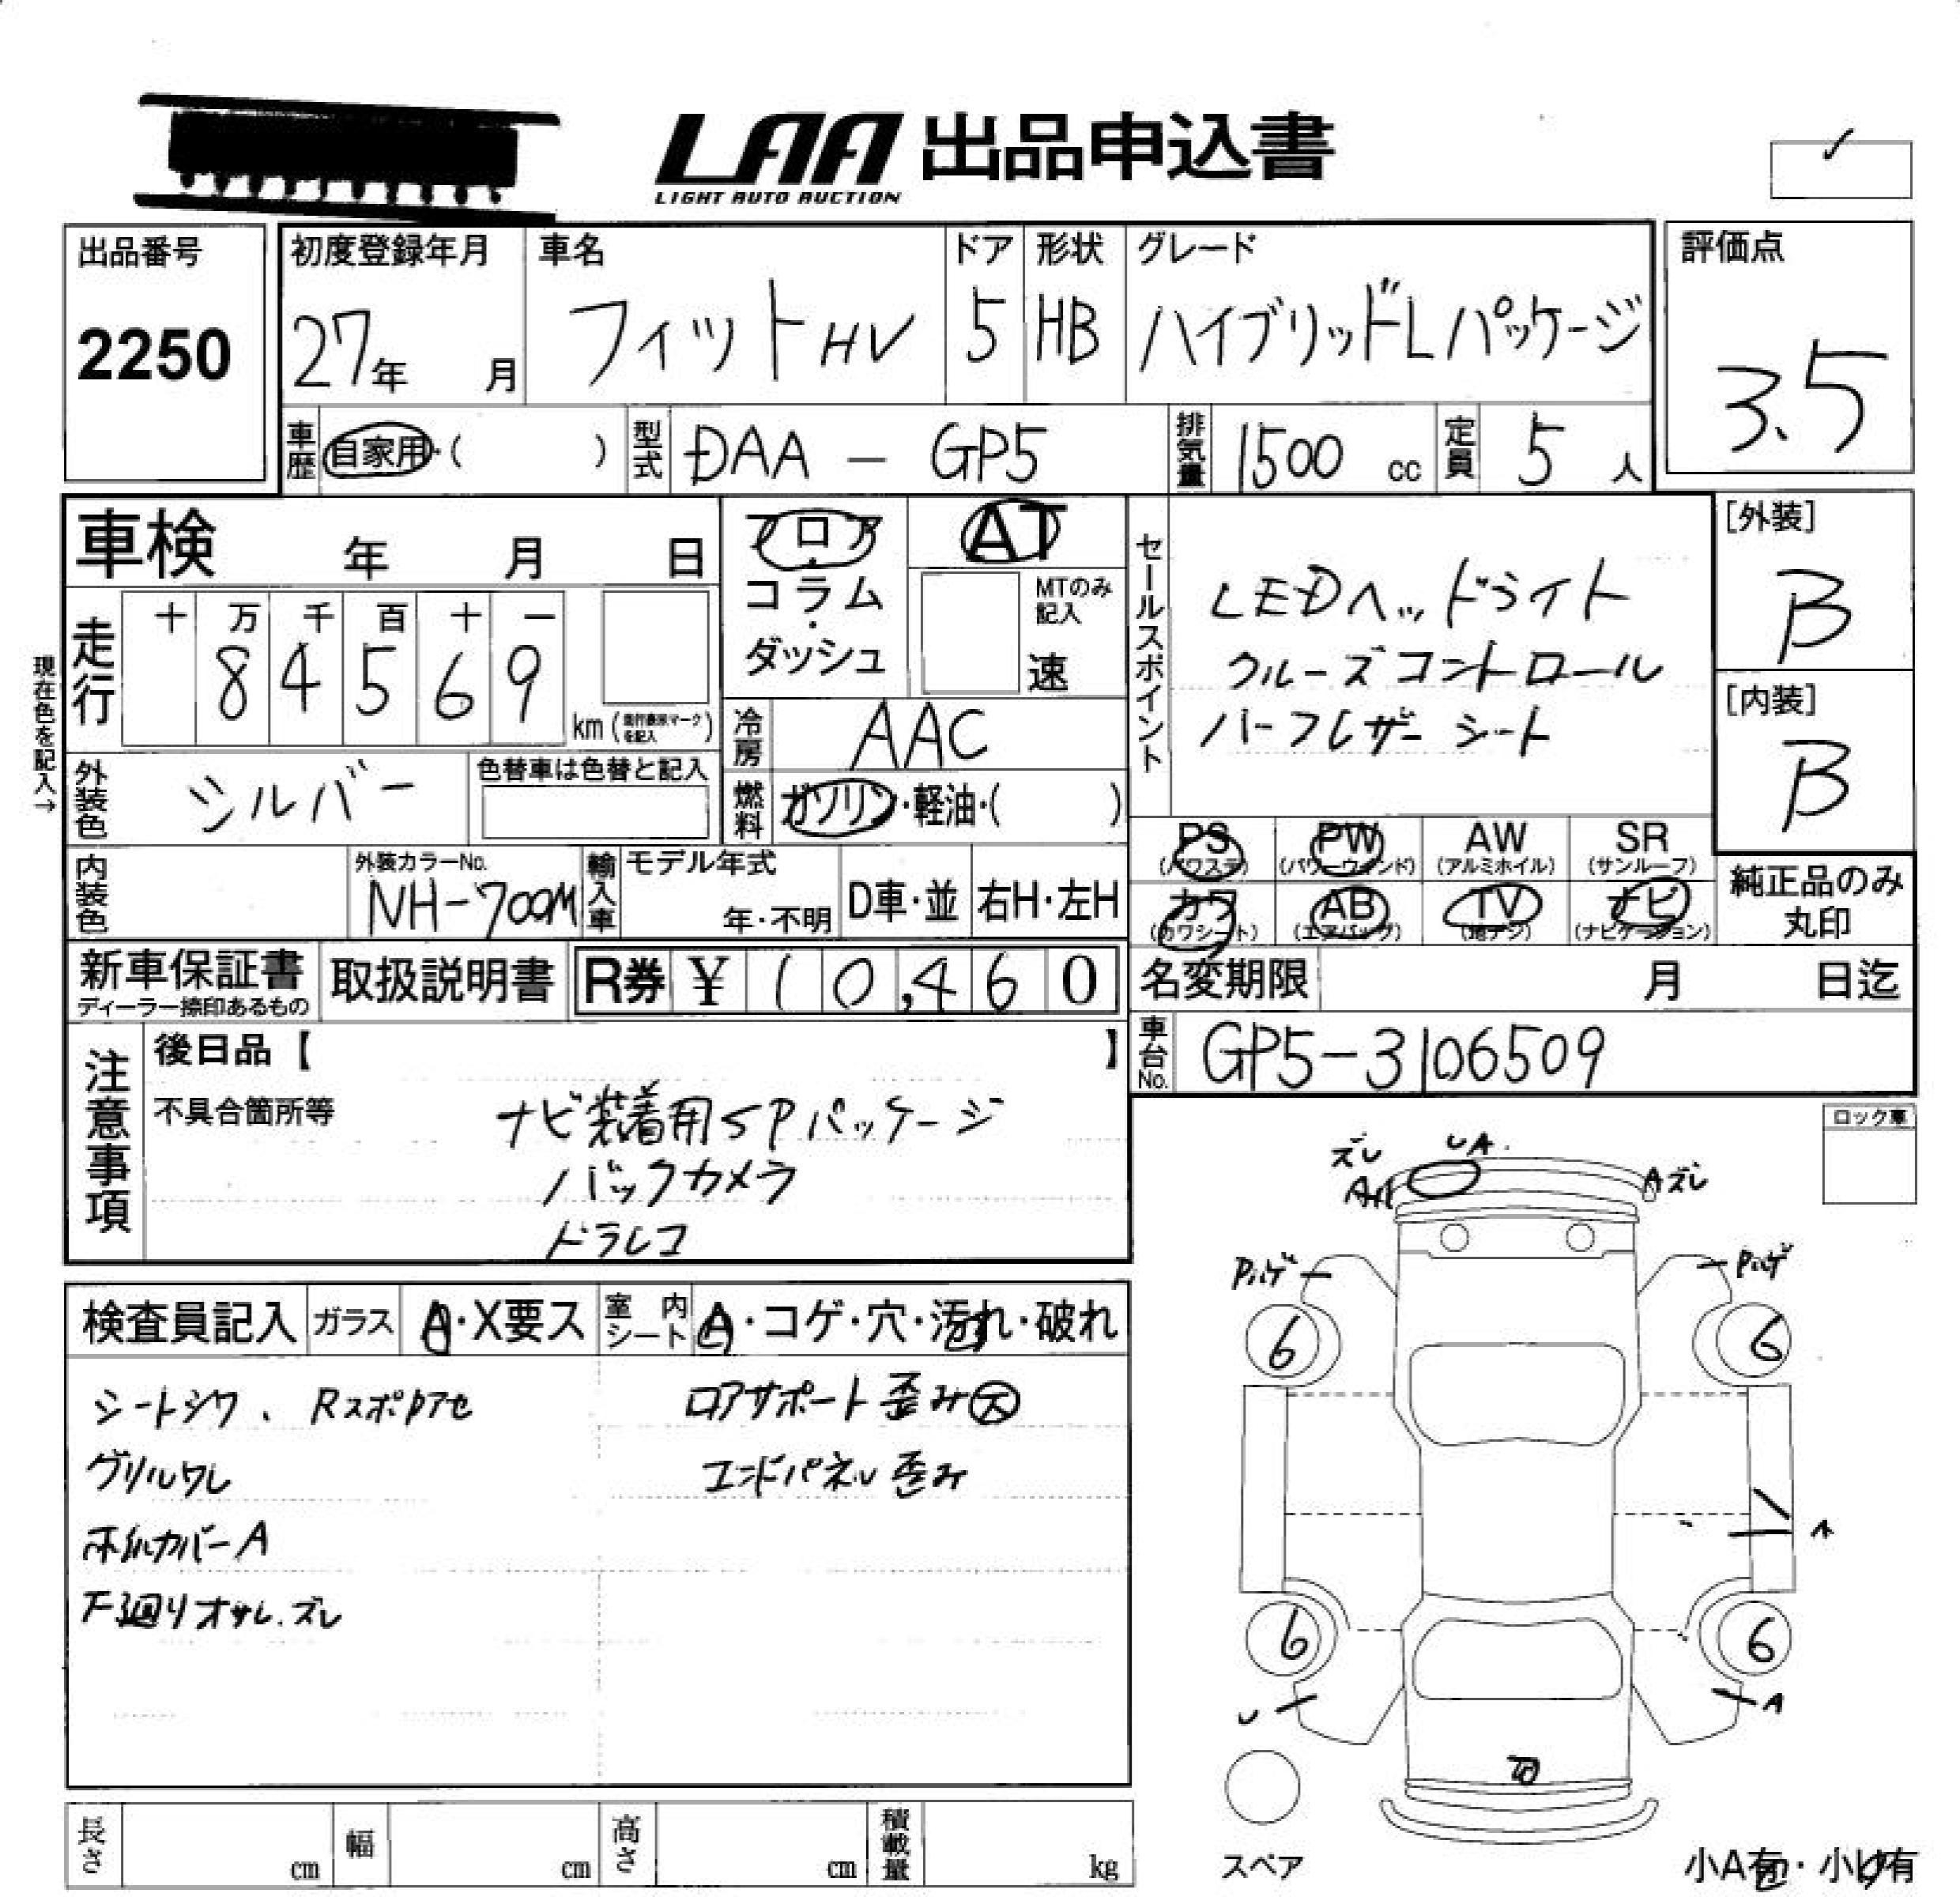 LAA 出品申込書
LIGHT AUTO AUCTION
出品番号
2250
初度登録年月
27年 月
車名
フィットHV
ドア
5
形状
HB
グレード
ハイブリッドLパッケージ
評価点
3.5
車歴 自家用・( )
型式 DAA - GP5
排気量 1500 cc
定員 5 人
車検 年 月 日
フロア
・
コラム
・
ダッシュ
AT
MTのみ
記入
速
セールスポイント
LEDヘッドライト
クルーズコントロール
ハーフレザーシート
[外装]
B
[内装]
B
現在色を記入→
走行
十 万 千 百 十 一
8 4 5 6 9
km(走行表示マークを記入)
冷房 AAC
燃料 ガソリン・軽油・( )
外装色 シルバー
色替車は色替と記入
内装色
外装カラーNo.
NH-700M
輸入車
モデル年式
年・不明
D車・並
右H・左H
PS (パワステ)
PW (パワーウィンド)
AW (アルミホイル)
SR (サンルーフ)
カワ (カワシート)
AB (エアバッグ)
TV (地デジ)
ナビ (ナビゲーション)
純正品のみ
丸印
新車保証書
ディーラー捺印あるもの
取扱説明書
R券 ¥ 10,460
名変期限 月 日迄
車台No. GP5-3106509
注意事項
後日品【 】
不具合箇所等
ナビ装着用SPパッケージ
バックカメラ
ドラレコ
ロック車
検査員記入
ガラス A・X要ス
室内シート A・コゲ・穴・汚れ・破れ
シートシワ、Rスポイラアセ
グリルワレ
ホイルカバーA
下廻りオサレ、ズレ
ロアサポート歪み大
エンドパネル歪み
ズレ
UA
Aズレ
Pハゲ
Pハゲ
6
6
A
6
6
U
A
スペア
小A有・小U有
長さ cm
幅 cm
高さ cm
積載量 kg